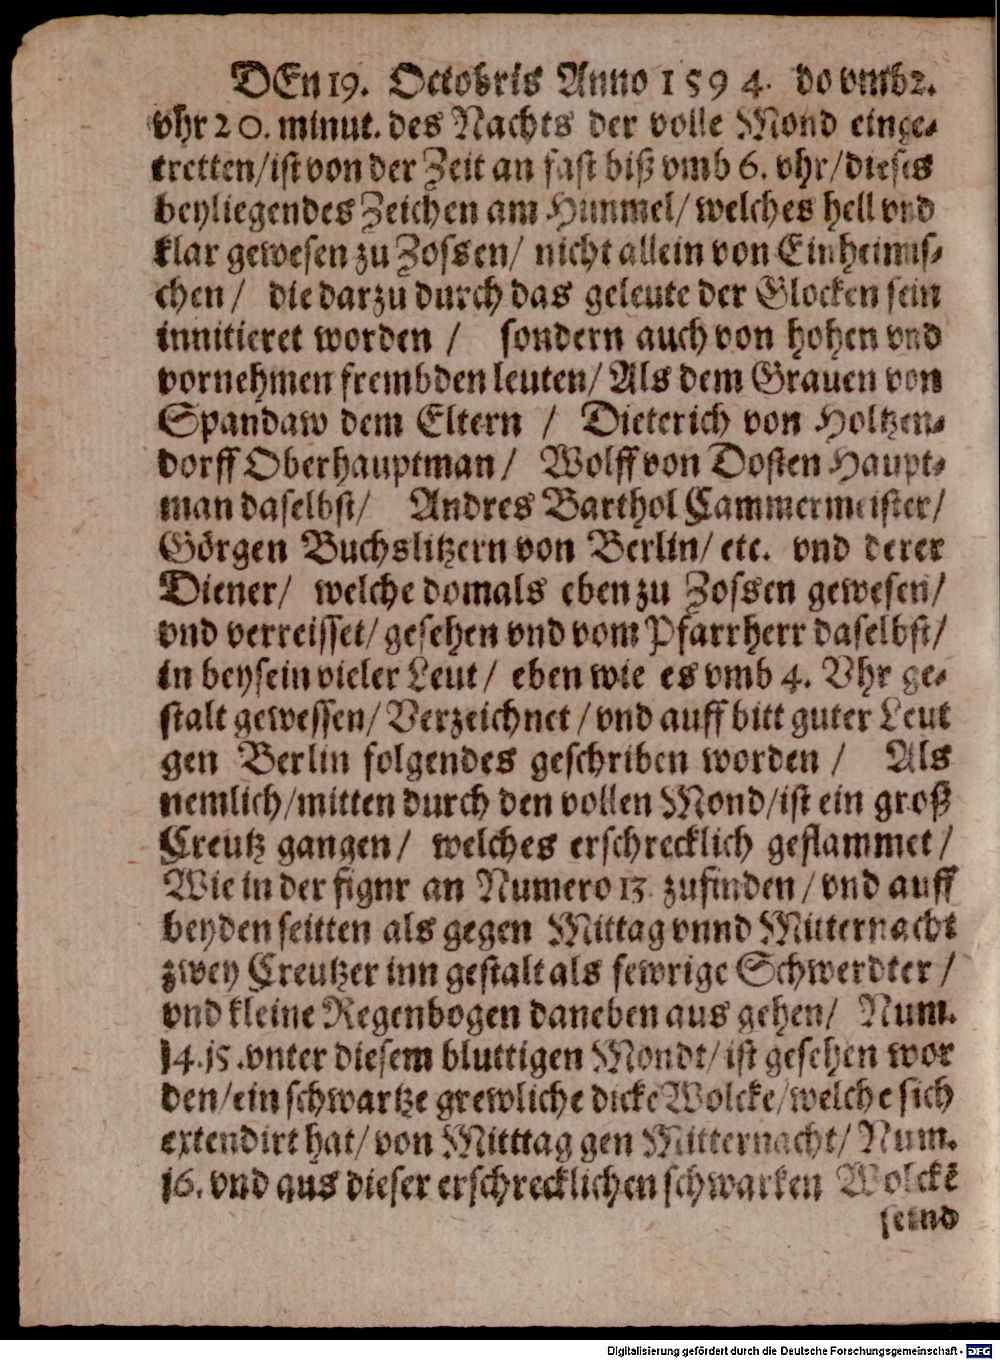 DEn 19. Octobris Anno 1594. do vmb 2.
vhr 20. minut. des Nachts der volle Mond einge-
tretten/ ist von der Zeit an fast biß vmb 6. vhr/ dieses
beyliegendes Zeichen am Himmel/ welches hell vnd
klar gewesen zu Zossen/ nicht allein von Einheimis-
chen/ die darzu durch das geleute der Glocken sein
innitieret worden / sondern auch von hohen vnd
vornehmen frembden leuten/ Als dem Grauen von
Spandaw dem Eltern / Dieterich von Holtzen-
dorff Oberhauptman/ Wolff von Dosten Haupt-
man daselbst/ Andres Barthol Cammermeister/
Görgen Buchslitzern von Berlin/ etc. vnd derer
Diener/ welche domals eben zu Zossen gewesen/
vnd verreisset/ gesehen vnd vom Pfarrherr daselbst/
in beysein vieler Leut/ eben wie es vmb 4. Vhr ge-
stalt gewessen/ Verzeichnet / vnd auff bitt guter Leut
gen Berlin folgendes geschriben worden / Als
nemlich/ mitten durch den vollen Mond/ ist ein groß
Creutz gangen/ welches erschrecklich geflammet/
Wie in der fignr an Numero 13. zufinden / vnd auff
beyden seitten als gegen Mittag vnnd Mitternacht
zwey Creutzer inn gestalt als fewrige Schwerdter /
vnd kleine Regenbogen daneben aus gehen/ Num.
14. 15. vnter diesem bluttigen Mondt/ ist gesehen wor
den/ ein schwartze grewliche dicke Wolcke/ welche sich
extendirt hat/ von Mitttag gen Mitternacht/ Num.
16. vnd aus dieser erschrecklichen schwarken Wolckē
seind
Digitalisierung gefördert durch die Deutsche Forschungsgemeinschaft - DFG